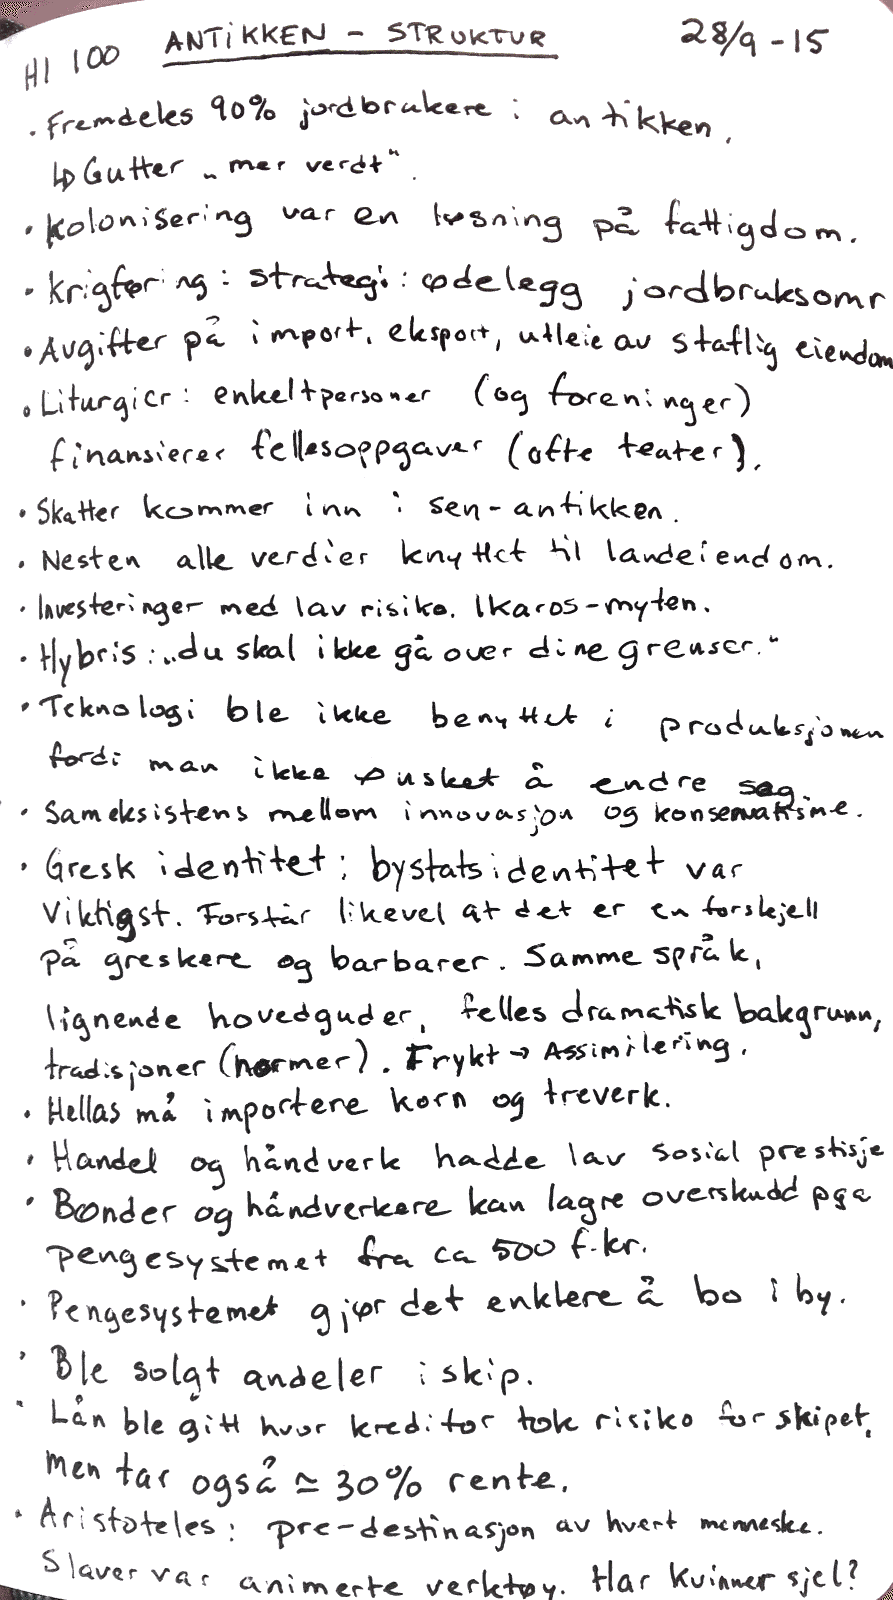 HI 100 ANTIKKEN - STRUKTUR 28/9-15
· Fremdeles 90% jordbrukere i antikken.
↳ Gutter "mer verdt".
· Kolonisering var en løsning på fattigdom.
· Krigføring: strategi: ødelegg jordbruksomr
· Avgifter på import, eksport, utleie av statlig eiendom
· Liturgier: enkeltpersoner (og foreninger)
finansierer fellesoppgaver (ofte teater).
· Skatter kommer inn i sen-antikken.
· Nesten alle verdier knyttet til landeiendom.
· Investeringer med lav risiko. Ikaros-myten.
· Hybris: "du skal ikke gå over dine grenser."
· Teknologi ble ikke benyttet i produksjonen
fordi man ikke ønsket å endre seg.
· Sameksistens mellom innovasjon og konservatisme.
· Gresk identitet: bystatsidentitet var
viktigst. Forstår likevel at det er en forskjell
på greskere og barbarer. Samme språk,
lignende hovedguder, felles dramatisk bakgrunn,
tradisjoner (normer). Frykt → Assimilering.
· Hellas må importere korn og treverk.
· Handel og håndverk hadde lav sosial prestisje
· Bønder og håndverkere kan lagre overskudd pga
pengesystemet fra ca 500 f.kr.
· Pengesystemet gjør det enklere å bo i by.
· Ble solgt andeler i skip.
· Lån ble gitt hvor kreditor tok risiko for skipet,
men tar også ≃ 30% rente.
· Aristoteles: pre-destinasjon av hvert menneske.
Slaver var animerte verktøy. Har kvinner sjel?